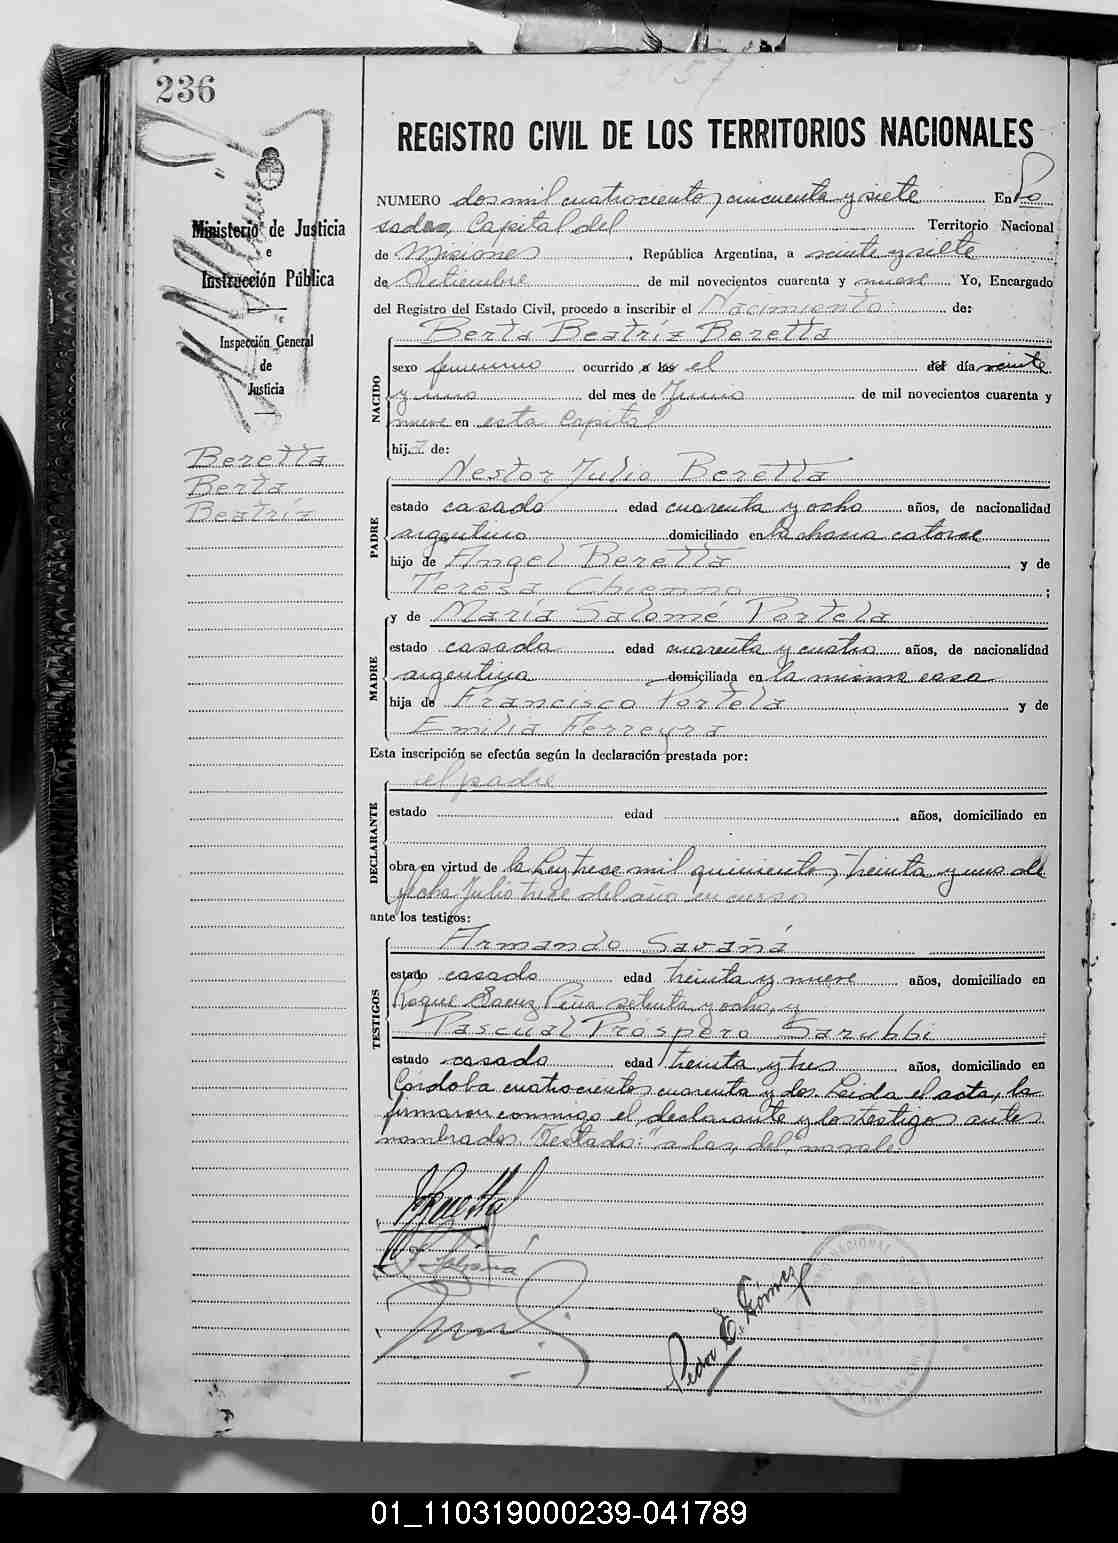 236
REGISTRO CIVIL DE LOS TERRITORIOS NACIONALES
Ministerio de Justicia
e
Instrucción Pública
Inspección General
de
Justicia
Beretta
Berta
Beatríz
NUMERO dos mil cuatrocientos cincuenta y siete En Po
sadas, Capital del Territorio Nacional
de Misiones, República Argentina, a veinte y siete
de Setiembre de mil novecientos cuarenta y nueve Yo, Encargado
del Registro del Estado Civil, procedo a inscribir el Nacimiento de:
Berta Beatríz Beretta
NACIDO
sexo femenino ocurrido a las el del día veinte
y uno del mes de Junio de mil novecientos cuarenta y
nueve en esta Capital
hija de:
Nestor Julio Beretta
PADRE
estado casado edad cuarenta y ocho años, de nacionalidad
argentino domiciliado en la chacra catorce
hijo de Angel Beretta y de
Teresa ;
y de María Salomé Portela
MADRE
estado casada edad cuarenta y cuatro años, de nacionalidad
argentina domiciliada en la misma casa
hija de Francisco Portela y de
Emilia Ferreyra
Esta inscripción se efectúa según la declaración prestada por:
el padre
DECLARANTE
estado edad años, domiciliado en
obra en virtud de la Ley trece mil quinientos treinta y uno de
fecha Julio trece del año en curso
ante los testigos:
Armando Savañá
TESTIGOS
estado casado edad treinta y nueve años, domiciliado en
Roque Saenz Peña setenta y ocho, y
Pascual Próspero Sarubbi
estado casado edad treinta y tres años, domiciliado en
Córdoba cuatrocientos cuarenta y dos. Leida el acta, la
firmaron conmigo el declarante y los testigos antes
nombrados. Testado: "a las, del, no vale.
Pedro E. Gómez
01_110319000239-041789